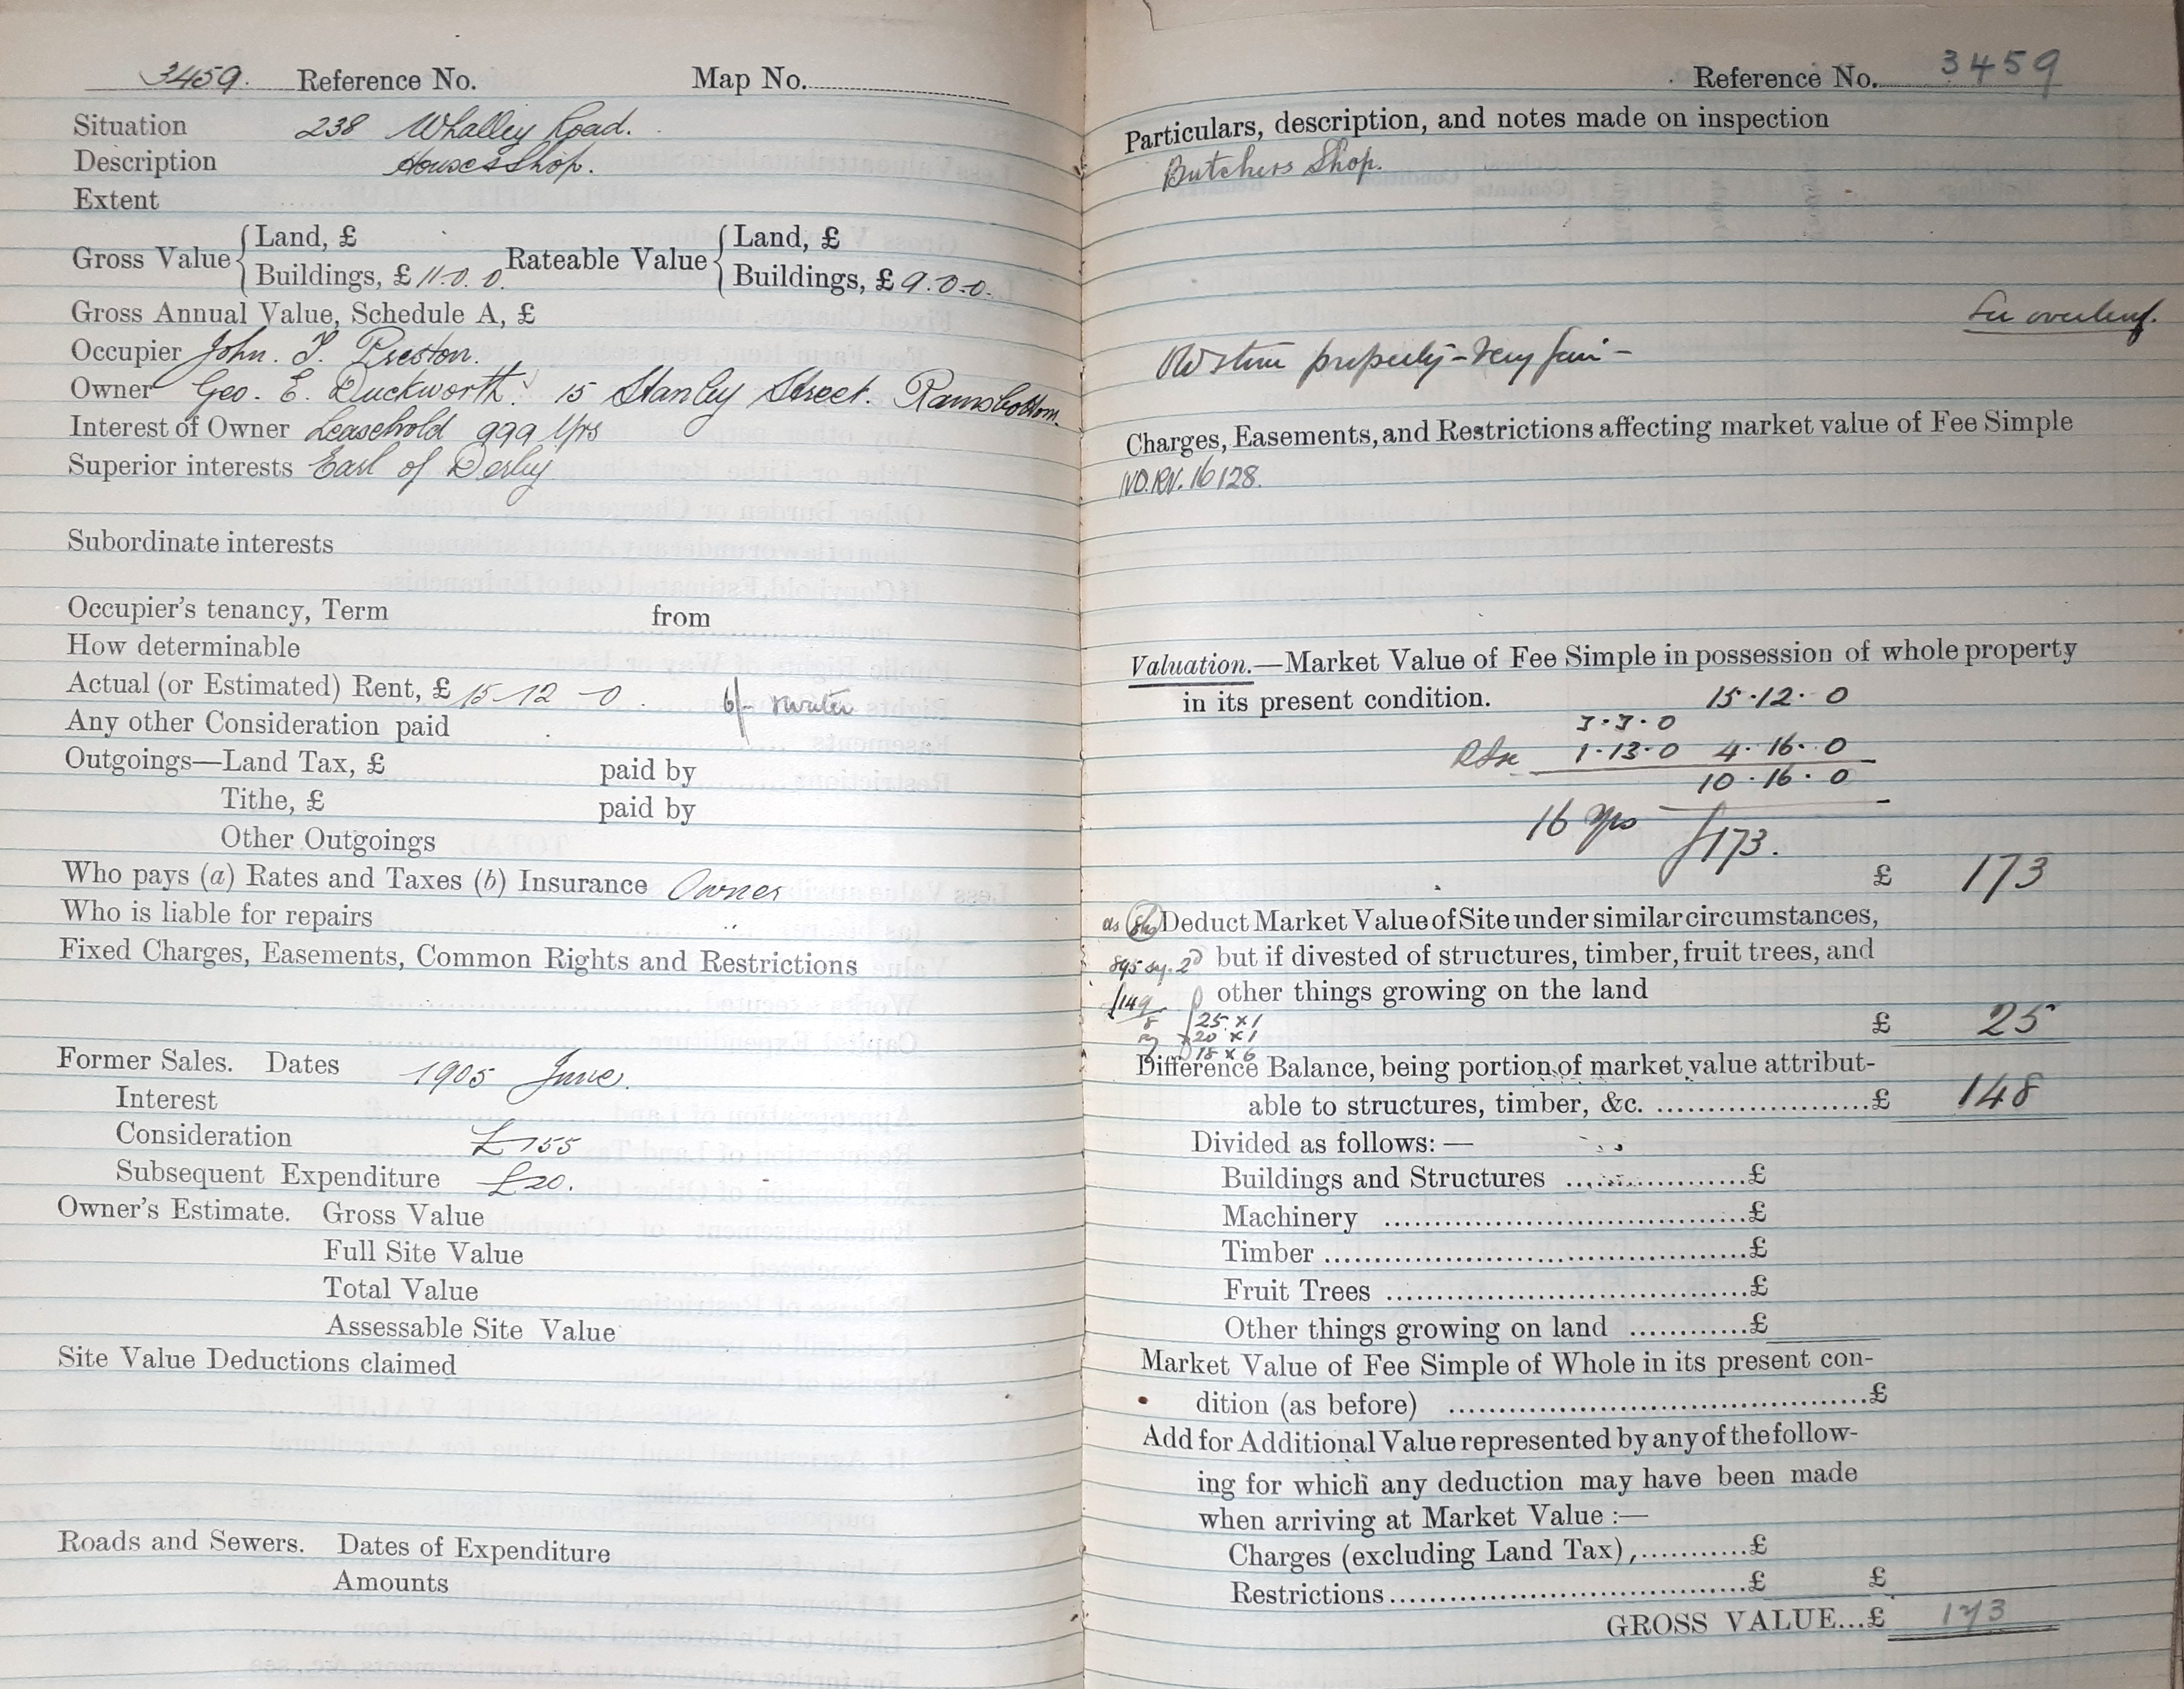 3459. Reference No. Map No.
Situation 238 Whalley Road.
Description House & Shop.
Extent
Gross Value { Land, £
Buildings, £ 11.0.0. Rateable Value { Land, £
Buildings, £ 9.0.0.
Gross Annual Value, Schedule A, £
Occupier John. T. Preston.
Owner Geo. E. Duckworth. 15 Stanley Street. Ramsbottom.
Interest of Owner Leasehold 999 Yrs
Superior interests Earl of Derby
Subordinate interests
Occupier's tenancy, Term from
How determinable
Actual (or Estimated) Rent, £ 15-12-0. 6/- water
Any other Consideration paid
Outgoings—Land Tax, £ paid by
Tithe, £ paid by
Other Outgoings
Who pays (a) Rates and Taxes (b) Insurance Owner
Who is liable for repairs
Fixed Charges, Easements, Common Rights and Restrictions
Former Sales. Dates 1905 June.
Interest
Consideration £155
Subsequent Expenditure £20.
Owner's Estimate. Gross Value
Full Site Value
Total Value
Assessable Site Value
Site Value Deductions claimed
Roads and Sewers. Dates of Expenditure
Amounts
Reference No. 3459
Particulars, description, and notes made on inspection
Butchers Shop.
See overleaf.
Old stone property - Very fair -
Charges, Easements, and Restrictions affecting market value of Fee Simple
NO.RV. 16128.
Valuation.—Market Value of Fee Simple in possession of whole property
in its present condition. 15.12.0
3.3.0
1.13.0 4.16.0
10.16.0
16 yrs £173.
£ 173
as Deduct Market Value of Site under similar circumstances,
895 sq. but if divested of structures, timber, fruit trees, and
£149 other things growing on the land
8 25 x 1
20 x 1
18 x 6
£ 25
Difference Balance, being portion of market value attribut-
able to structures, timber, &c. ....................£ 148
Divided as follows:—
Buildings and Structures ..................£
Machinery ....................................£
Timber ..........................................£
Fruit Trees ....................................£
Other things growing on land ............£
Market Value of Fee Simple of Whole in its present con-
dition (as before) ..........................................£
Add for Additional Value represented by any of the follow-
ing for which any deduction may have been made
when arriving at Market Value :—
Charges (excluding Land Tax)............£
Restrictions....................................£ £
GROSS VALUE...£ 173